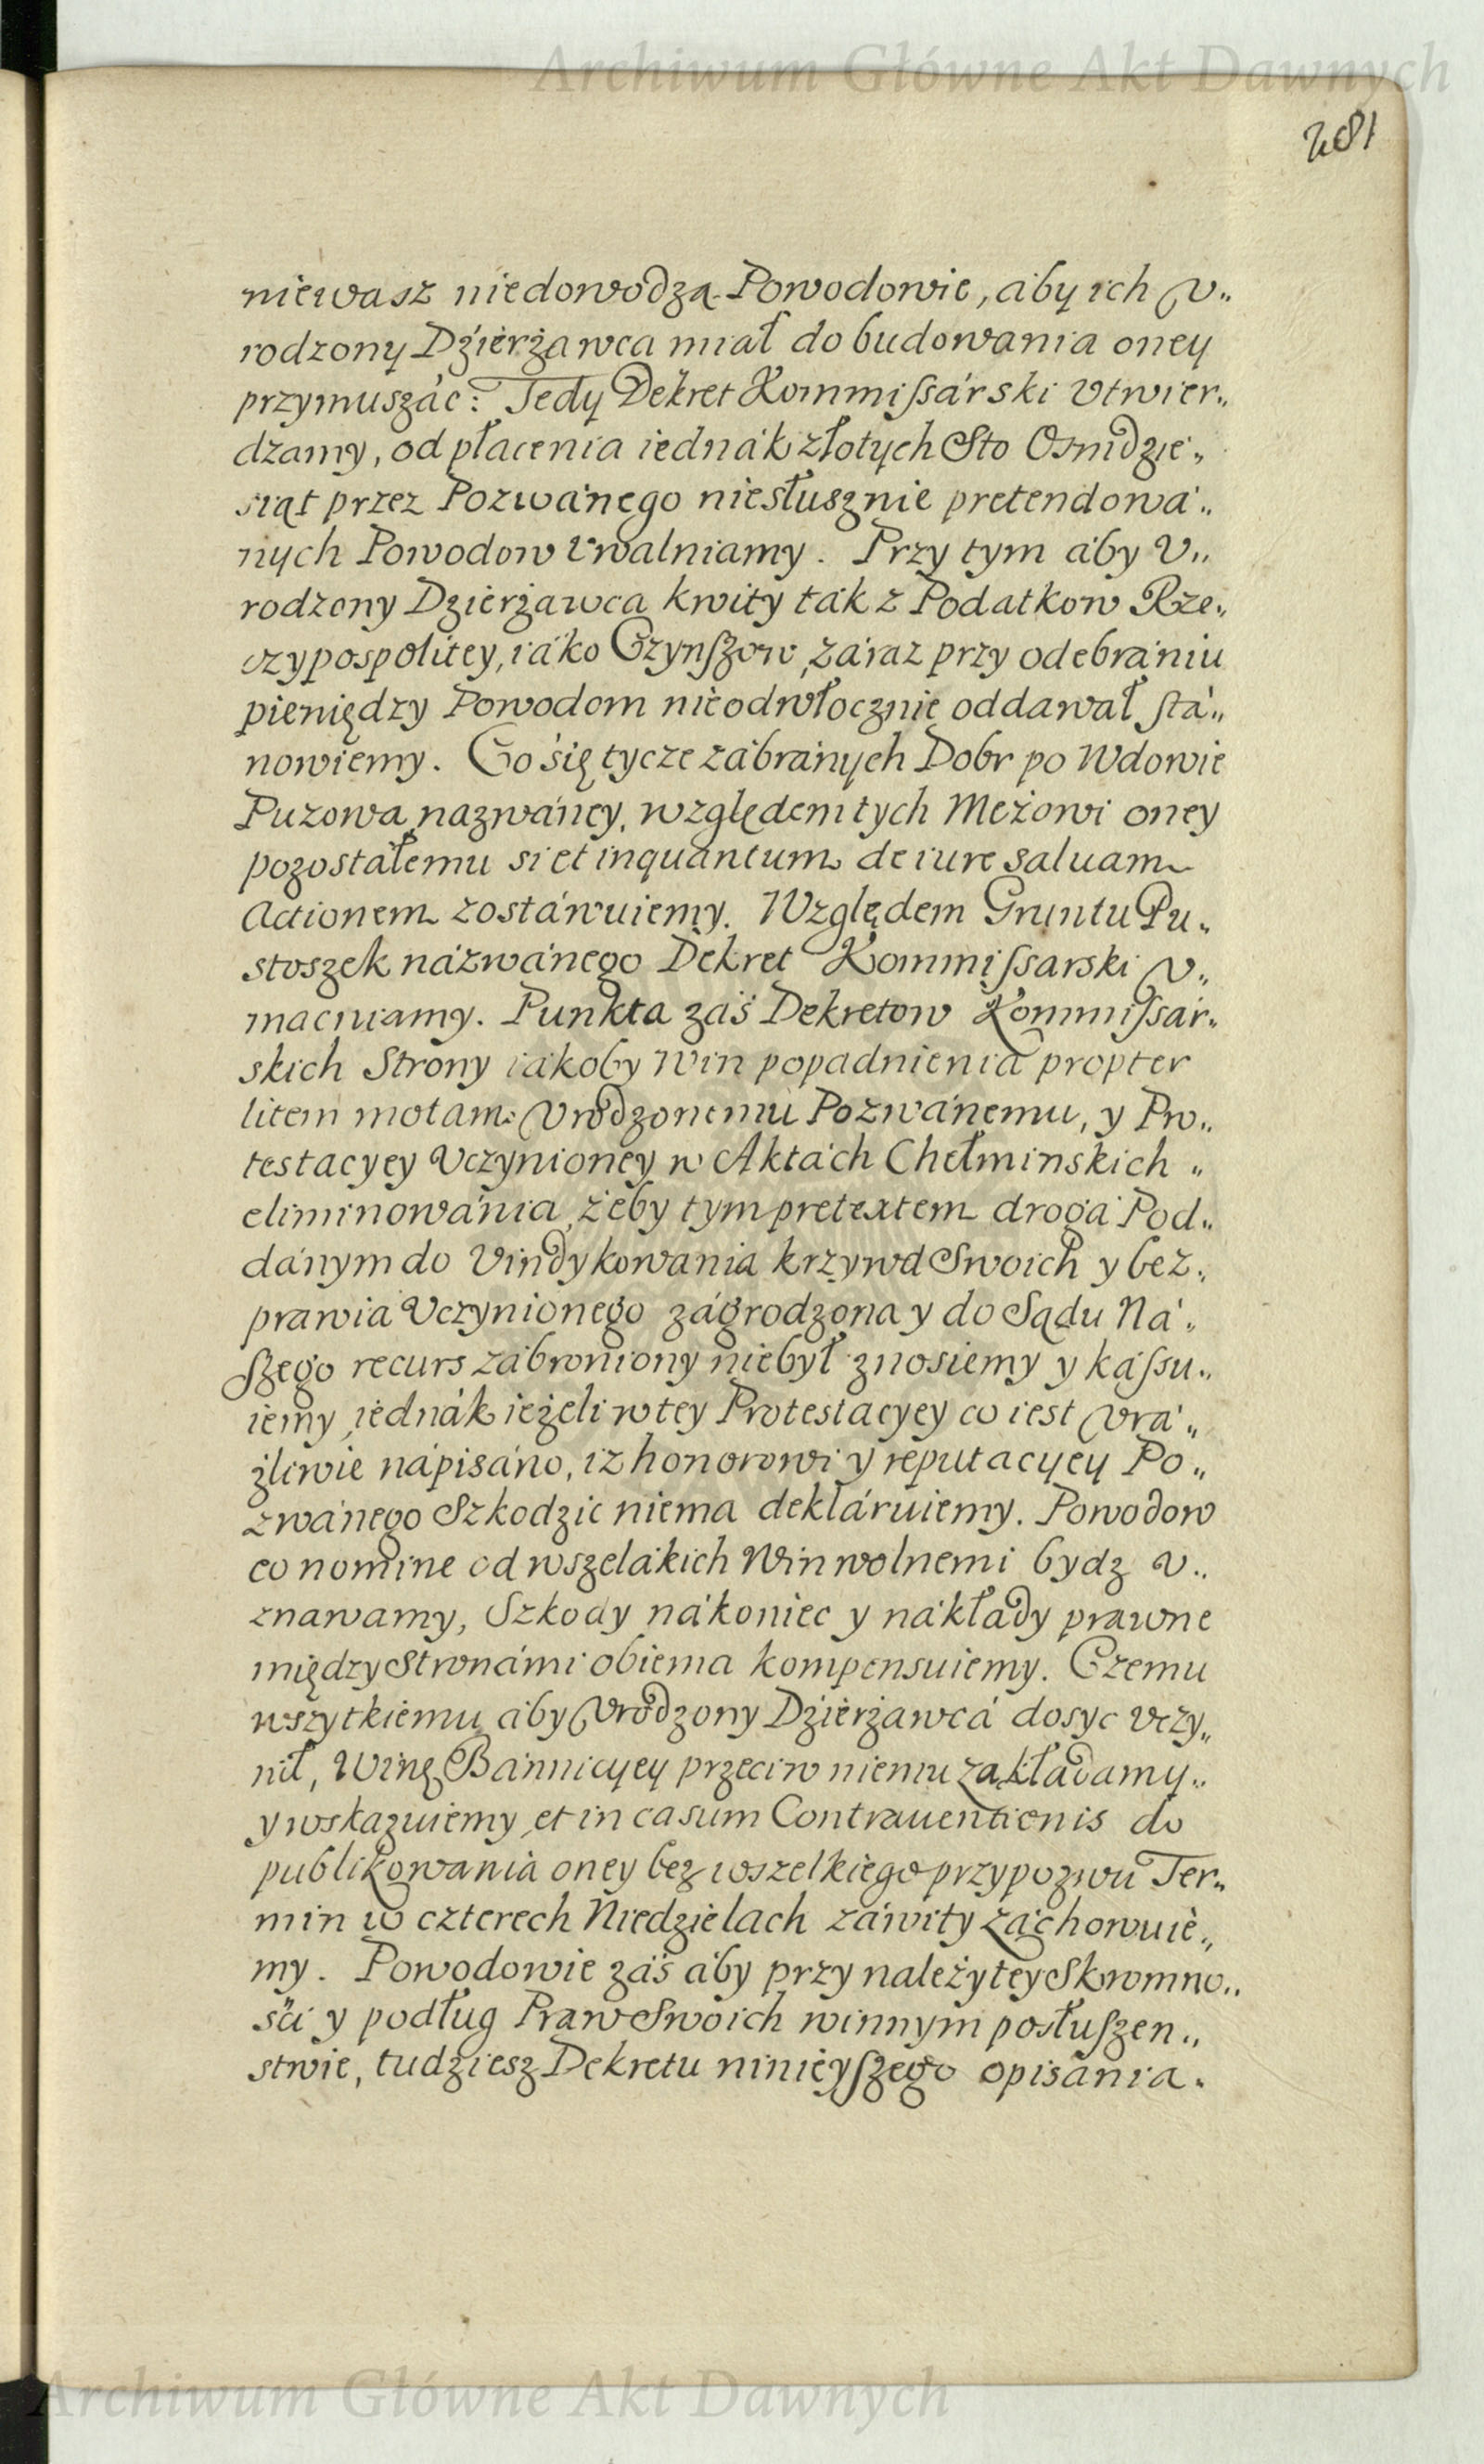 Archiwum Główne Akt Dawnych
281
niewasz niedowodzą Powodowie, aby ich V„
rodzony Dzierżawca miał do budowania oney
przymuszać: Tedy Dekret Kommissárski Vtwier„
dzamy, od płacenia iednák złotych Sto Osmdzie„
siąt przez Pozwánego niesłusznie pretendowá„
nych Powodow Vwalniamy. Przy tym áby V„
rodzony Dzierżawca kwity ták z Podatkow Rze„
czypospolitey, iáko Czynszow, záraz przy odebrániu
pieniędzy Powodom nieodwłocznie oddawał stá„
nowiemy. Co się tycze zábránych Dobr po Wdowie
Puzowa názwáney, względem tych Mężowi oney
pozostáłemu si et inquantum de iure saluam
Actionem zostáwuiemy. Względem Gruntu Pu„
stoszek názwánego Dekret Kommissarski v„
macniamy. Punkta záś Dekretow Kommissár„
skich Strony iákoby Win popadnienia propter
litem motam Vrodzonemu Pozwánemu, y Pro„
testacyey Vczynioney w Aktách Chełminskich „
eliminowánia, żeby tym pretextem droga Pod„
dánym do Vindykowania krzywd Swoich y bez„
prawia Vczynionego zágrodzona y do Sądu Ná„
szego recurs zábroniony niebył znosiemy y kássu„
iemy, iednák ieżeli w tey Protestacyey co iest Vrá„
źliwie nápisáno, iz honorowi y reputacyey Po„
zwánego Szkodzic niema dekláruiemy. Powodow
eo nomine od wszelákich Win wolnemi bydz v„
znawamy, Szkody nákoniec y nákłády prawne
między Stronámi obiema kompensuiemy. Czemu
wszytkiemu áby Vrodzony Dzierżawcá dosyc Vczy„
nił, Winę Bánnicyey przeciw niemu zakładamy„
y wskazuiemy, et in casum Contrauentionis do
publikowania oney bez wszelkiego przypozwu Ter„
min w czterech Niedzielach záwity záchowuie„
my. Powodowie záś áby przy należytey Skromno„
ści y podług Praw Swoich winnym posłuszen„
stwie, tudziesz Dekretu ninieyszego opisánia„
Archiwum Główne Akt Dawnych